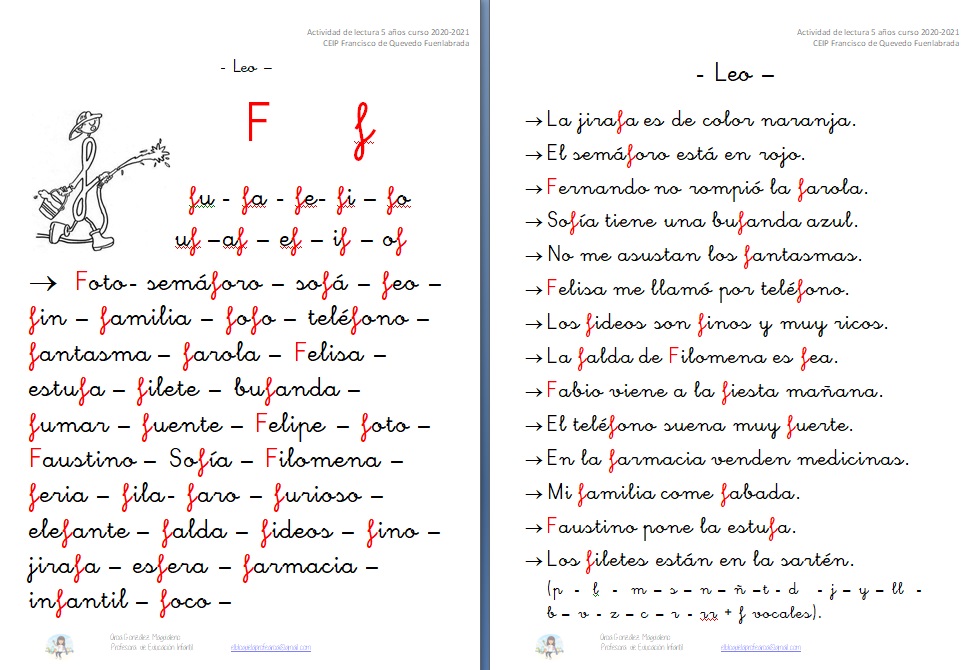 Actividad de lectura 5 años curso 2020-2021
CEIP Francisco de Quevedo Fuenlabrada
- Leo –
F f
fu - fa - fe- fi – fo
uf –af – ef – if – of
→ Foto- semáforo – sofá – feo –
fin – familia – fofo – teléfono –
fantasma – farola – Felisa –
estufa – filete – bufanda –
fumar – fuente – Felipe – foto –
Faustino – Sofía – Filomena –
feria – fila- faro – furioso –
elefante – falda – fideos – fino –
jirafa – esfera – farmacia –
infantil – foco –
Profesora de Educación Infantil
Actividad de lectura 5 años curso 2020-2021
CEIP Francisco de Quevedo Fuenlabrada
- Leo –
→ La jirafa es de color naranja.
→ El semáforo está en rojo.
→ Fernando no rompió la farola.
→ Sofía tiene una bufanda azul.
→ No me asustan los fantasmas.
→ Felisa me llamó por teléfono.
→ Los fideos son finos y muy ricos.
→ La falda de Filomena es fea.
→ Fabio viene a la fiesta mañana.
→ El teléfono suena muy fuerte.
→ En la farmacia venden medicinas.
→ Mi familia come fabada.
→ Faustino pone la estufa.
→ Los filetes están en la sartén.
(p - l - m – s – n – ñ –t - d - j – y – ll -
b – v - z – c – r - rr + f vocales).
Profesora de Educación Infantil